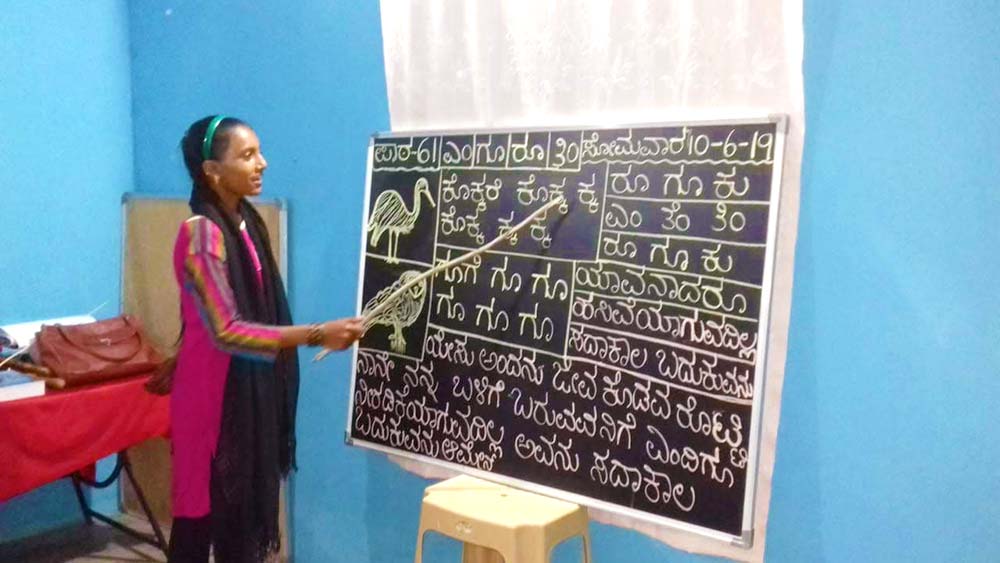 ಪಾಠ-61 ಎಂ ಗೂ ರೂ ಸೋಮವಾರ 10-6-19
ಕೊಕ್ಕರೆ ಕೊಕ್ಕ ಕ್ಕ
ಕೊಕ್ಕ ಕ್ಕ ಕ್ಕ
ರೂ ಗೂ ಕು
ಎಂ ತೆಂ ತಿಂ
ರೂ ಗೂ ಕು
ಗೂಗೆ ಗೂ ಗೂ
ಗೂ ಗೂ ಗೂ
ಯಾವನಾದರೂ
ಹಸಿವೆಯಾಗುವದಿಲ್ಲ
ಸದಾಕಾಲ ಬದುಕುವನು
ಯೇಸು ಅಂದನು ಜೀವ ಕೊಡುವ ರೊಟ್ಟಿ
ನಾನೇ ನನ್ನ ಬಳಿಗೆ ಬರುವವನಿಗೆ ಎಂದಿಗೂ
ಅವನು ಸದಾಕಾಲ
ಬದುಕುವನು ಆಮೇನ್